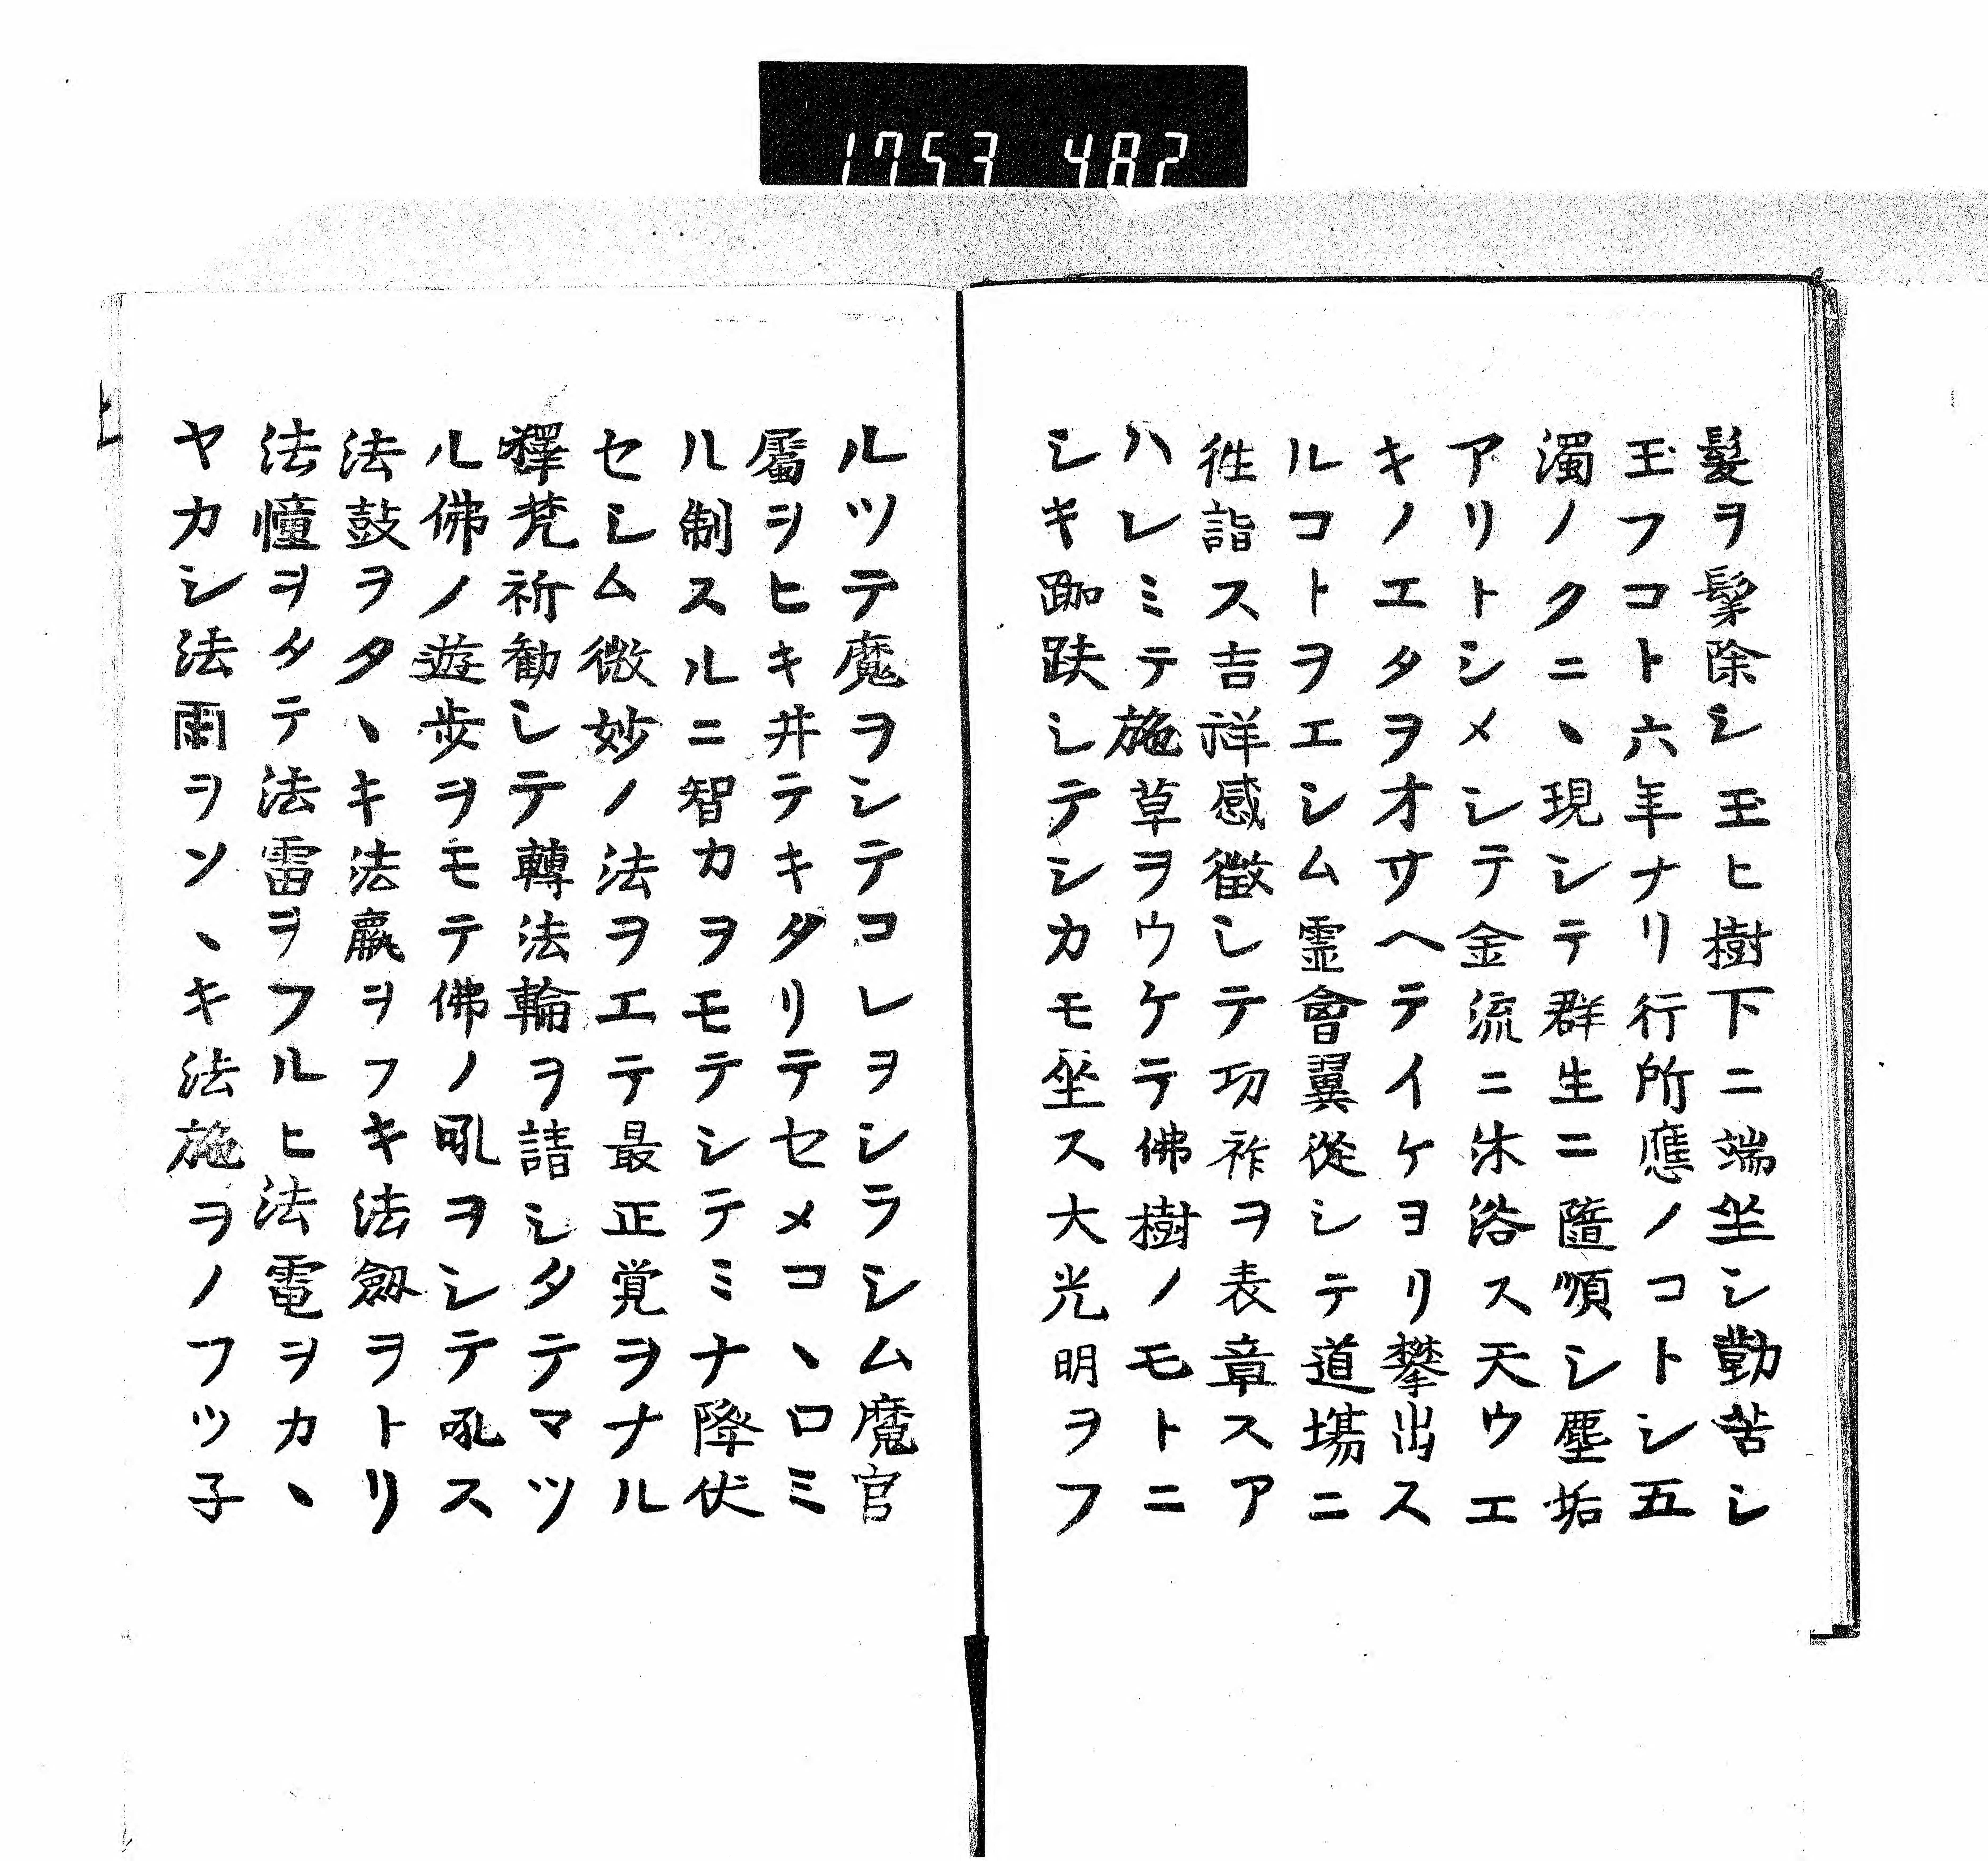 1753 482
髪ヲ髴除シ玉ヒ樹下ニ端坐シ勤苦シ
玉フコト六年ナリ行所應ノコトシ五
濁ノクニヽ現シテ群生ニ隨順シ塵垢
アリトシメシテ金流ニ沐浴ス天ウエ
キノエタヲオサヘテイケヨリ攀出ス
ルコトヲエシム霊會翼從シテ道場ニ
徃詣ス吉祥感徴シテ功祚ヲ表章スア
ハレミテ施草ヲウケテ佛樹ノモトニ
シキ跏趺シテシカモ坐ス大光明ヲフ
ルツテ魔ヲシテコレヲシラシム魔官
屬ヲヒキ井テキタリテセメコヽロミ
ル制スルニ智カヲモテシテミナ降伏
セシム微妙ノ法ヲエテ最正覚ヲナル
釋梵祈勧シテ轉法輪ヲ請シタテマツ
ル佛ノ遊歩ヲモテ佛ノ吼ヲシテ吼ス
法鼓ヲタヽキ法蠃ヲフキ法劔ヲトリ
法憧ヲタテ法雷ヲフルヒ法電ヲカヽ
ヤカシ法雨ヲソヽキ法施ヲノフツ子